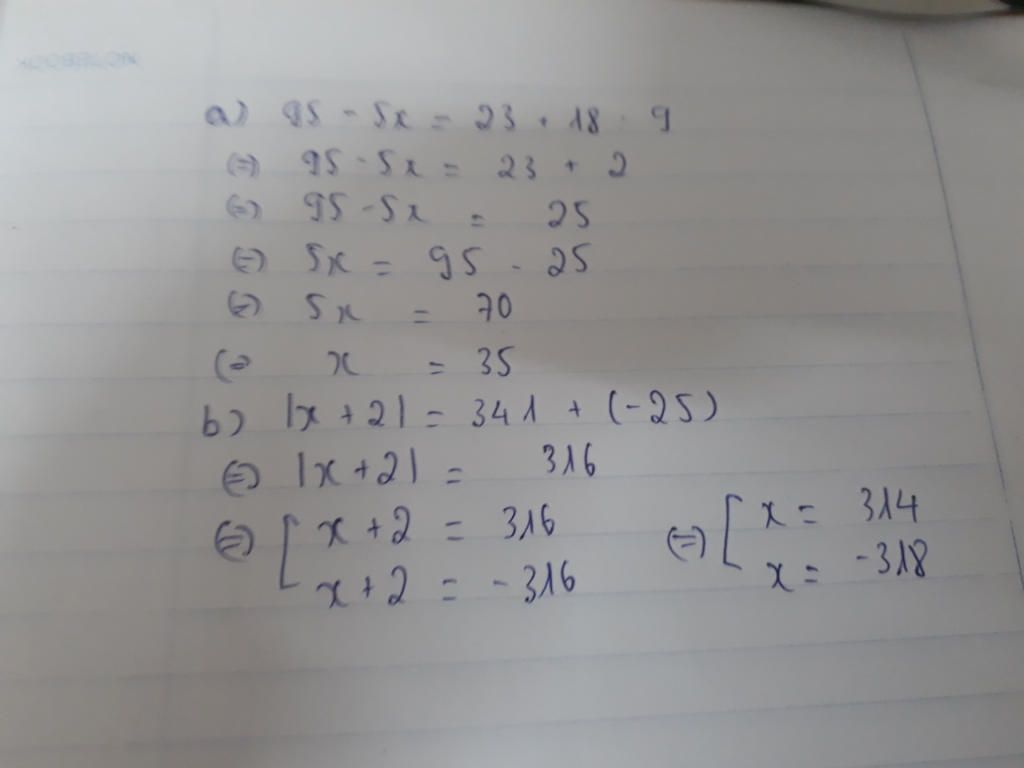 NOTEBOOK
a) 95 - 5x = 23 + 18 : 9
(=) 95 - 5x = 23 + 2
(=) 95 - 5x = 25
(=) 5x = 95 - 25
(=) 5x = 70
(=) x = 35
b) |x + 2| = 341 + (-25)
(=) |x + 2| = 316
(=) [ x + 2 = 316 (=) [ x = 314
x + 2 = -316 x = -318